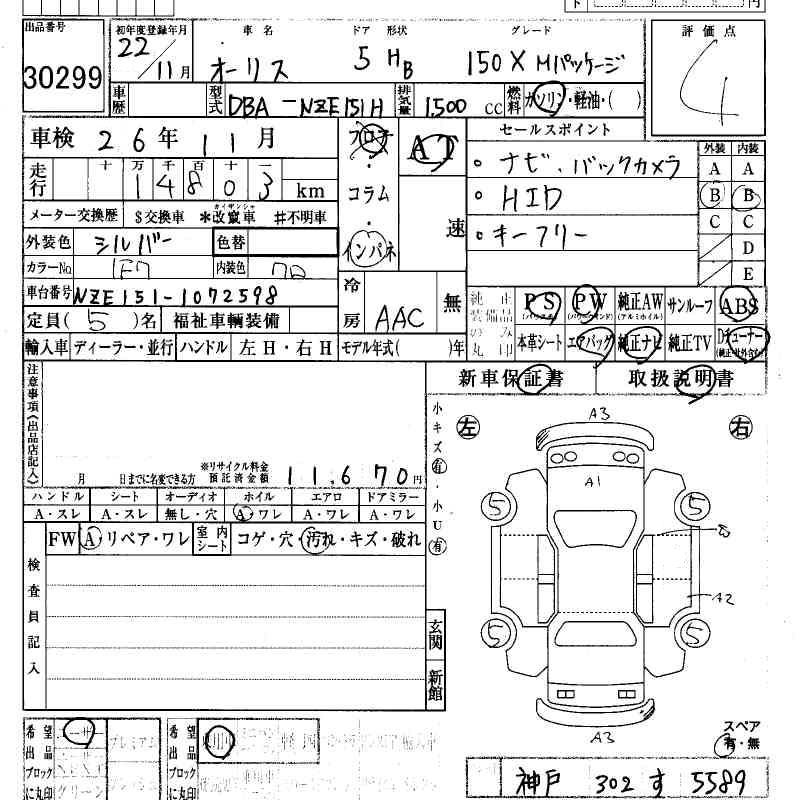 出品番号 初年度登録年月 車名 ドア 形状 グレード 評価点
30299 22/11月 オーリス 5 HB 150X Mパッケージ 4
車歴 型式 DBA-NZE151H 排気量 1,500 cc 燃料 ガソリン・軽油・( )
車検 26年11月 フロア AT セールスポイント 外装 内装
・ナビ、バックカメラ A A
走行 十 万 千 百 十 一
14803 km コラム ・HID B B
メーター交換歴 $交換車 *改竄車 #不明車 速 C C
外装色 シルバー 色替 インパネ ・キーフリー D
カラーNo. 1F7 内装色 E
車台番号 NZE151-1072598 冷房 AAC 無 純正装備品のみ丸印 PS PW 純正AW サンルーフ ABS
(パワステ) (パワーウインド) (アルミホイル)
定員(5)名 福祉車輌装備 本革シート エアバッグ 純正ナビ 純正TV Dチューナー
輸入車 ディーラー・並行 ハンドル 左H・右H モデル年式( )年
新車保証書 取扱説明書
注意事項(出品店記入)
小キズ有・小U有
左 右
A3
A1
5 5
A2
5 5
A3
月 日までに名変できる方 ※リサイクル料金預託済金額 11,670円
ハンドル シート オーディオ ホイル エアロ ドアミラー
A・スレ A・スレ 無し・穴 A・ワレ A・ワレ A・ワレ
FW A リペア・ワレ 室内シート コゲ・穴・汚れ・キズ・破れ
検査員記入
玄関
新館
スペア
有・無
希望出品ブロックに丸印 プレミアム 希望出品ブロックに丸印
神戸 302 す 5589